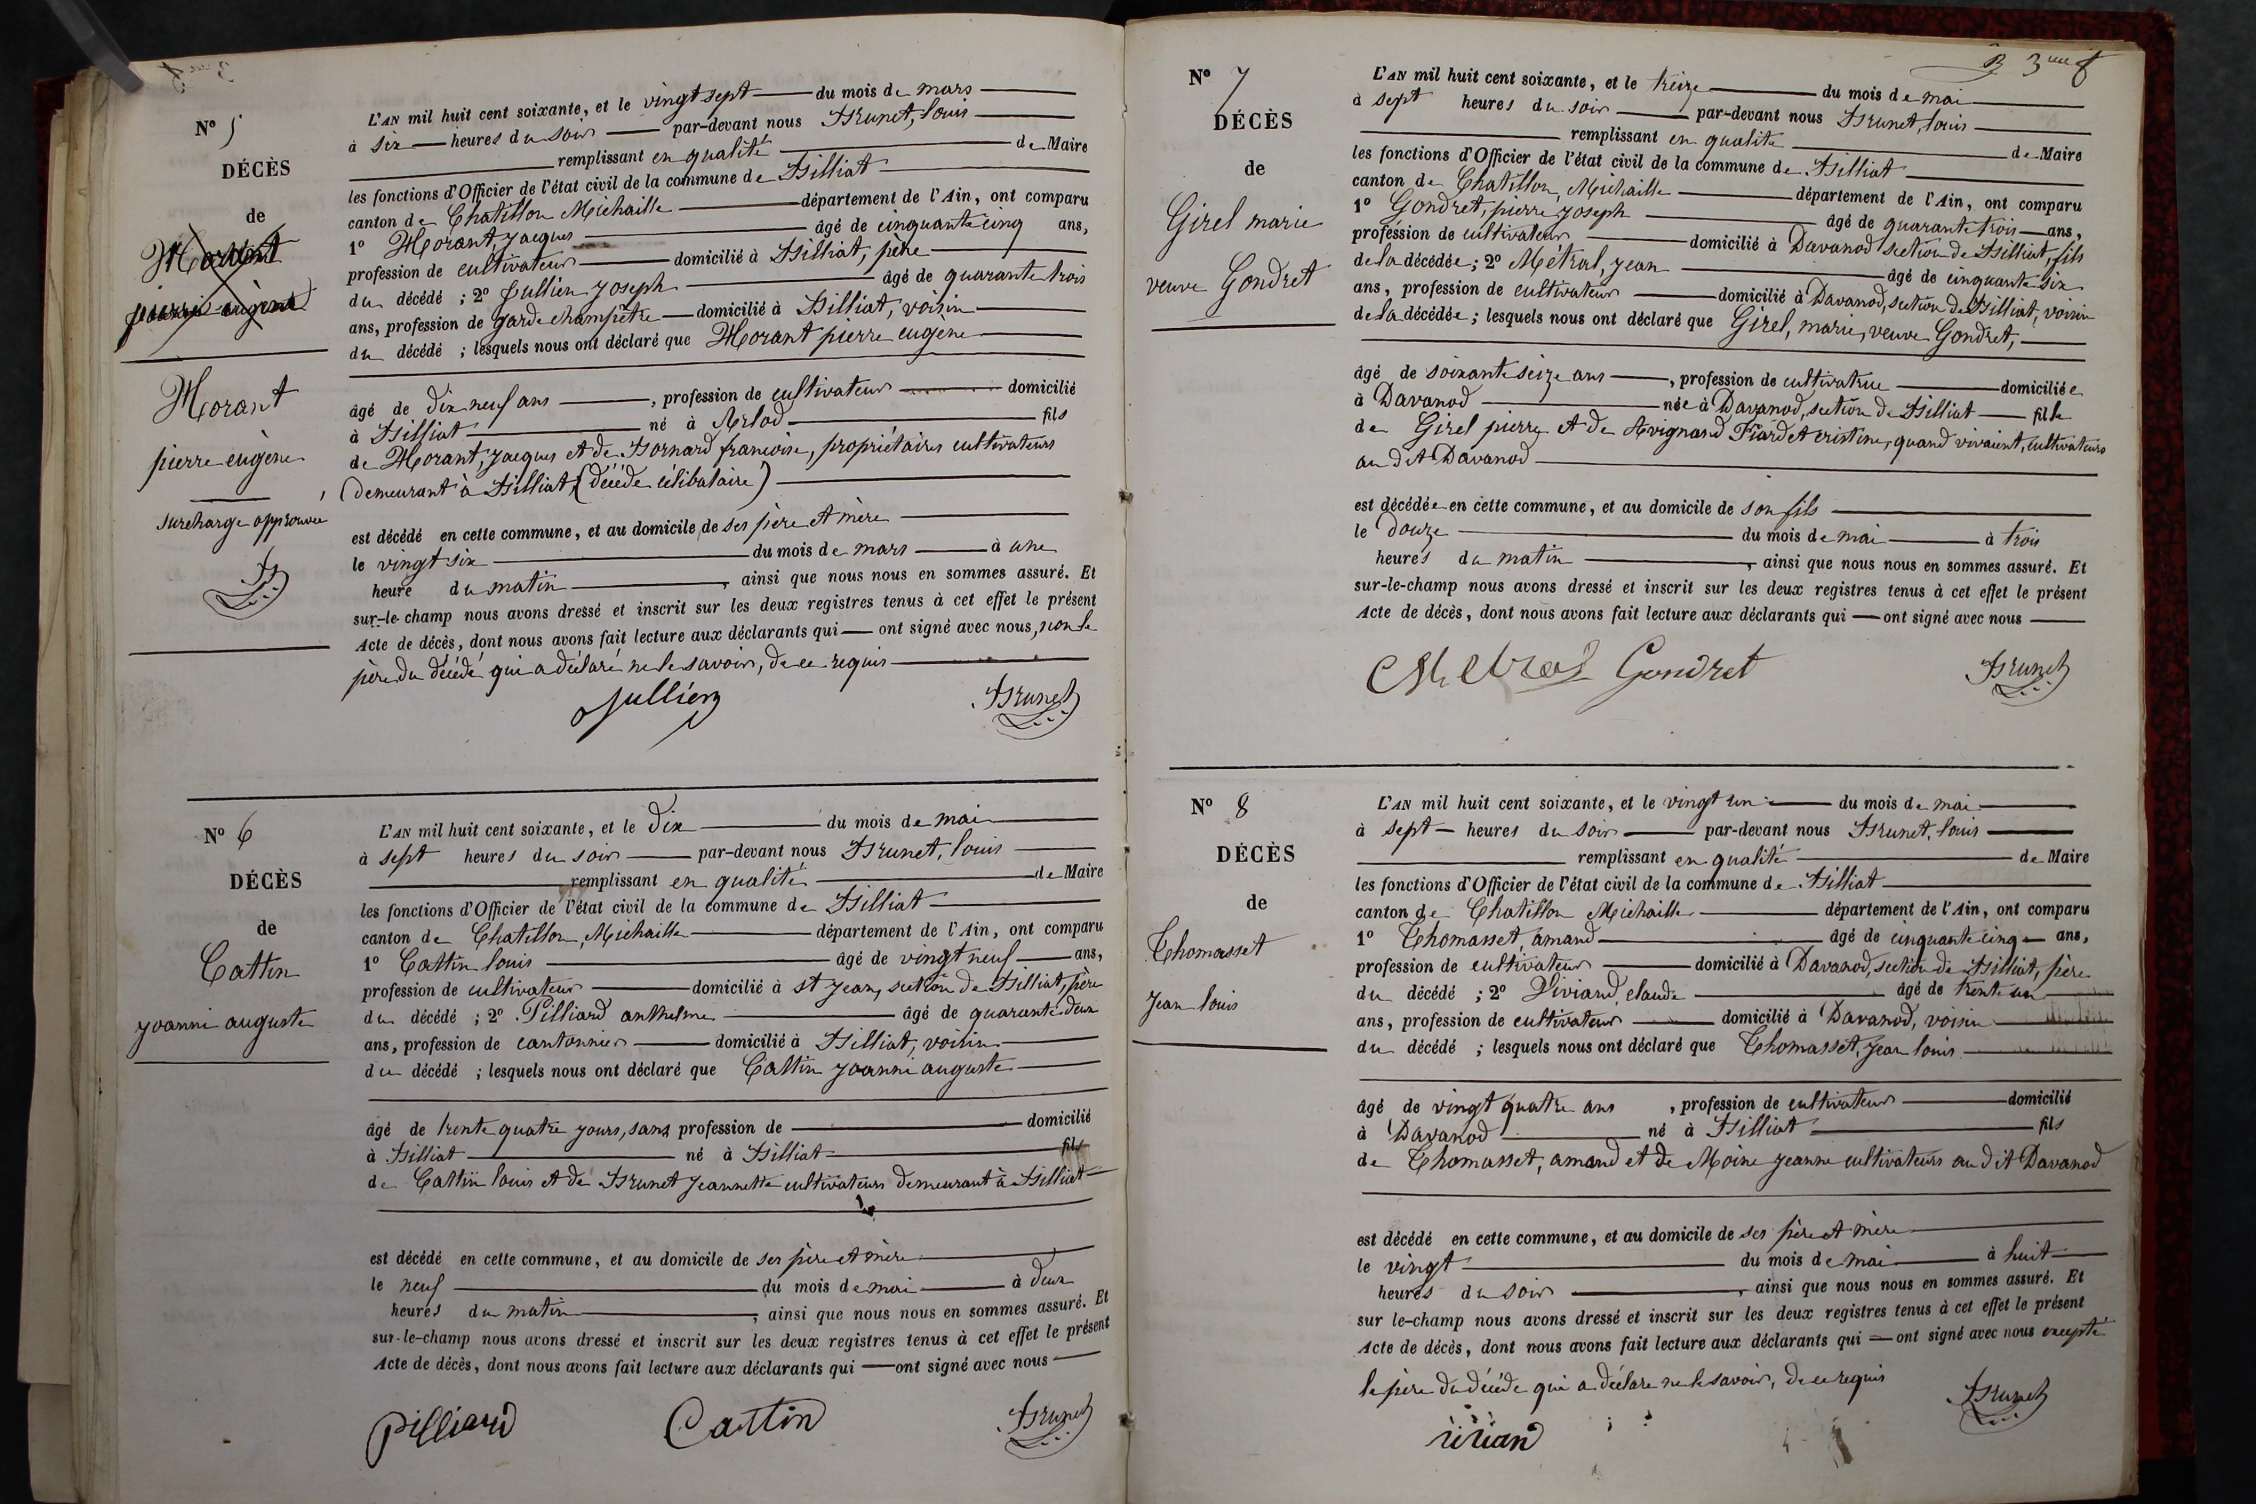 N° 5
DÉCÈS
de
Morant
pierre eugène
Morant
pierre eugène
surcharge approuvée
L'AN mil huit cent soixante, et le vingt sept du mois de mars
à six heures du soir par-devant nous Brunet, louis
remplissant en qualité de Maire
les fonctions d'Officier de l'état civil de la commune de Billiat
canton de Chatillon Michaille département de l'Ain, ont comparu
1° Morant, jacques âgé de cinquante cinq ans,
profession de cultivateur domicilié à Billiat, père
du décédé ; 2° Jullien joseph âgé de quarante trois
ans, profession de garde champêtre domicilié à Billiat, voisin
du décédé ; lesquels nous ont déclaré que Morant pierre eugène
âgé de dix neuf ans , profession de cultivateur domicilié
à Billiat né à Arlod fils
de Morant, jacques et de Bornard francoise, propriétaires cultivateurs
demeurant à Billiat, (décédé célibataire)
est décédé en cette commune, et au domicile de ses père et mère
le vingt six du mois de mars à une
heure du matin , ainsi que nous nous en sommes assuré. Et
sur-le-champ nous avons dressé et inscrit sur les deux registres tenus à cet effet le présent
Acte de décès, dont nous avons fait lecture aux déclarants qui ont signé avec nous, non le
père du décédé qui a déclaré ne le savoir, de ce requis
Jullien Brunet
N° 6
DÉCÈS
de
Cattin
joanni auguste
L'AN mil huit cent soixante, et le dix du mois de mai
à sept heures du soir par-devant nous Brunet, louis
remplissant en qualité de Maire
les fonctions d'Officier de l'état civil de la commune de Billiat
canton de Chatillon, Michaille département de l'Ain, ont comparu
1° Cattin louis âgé de vingt neuf ans,
profession de cultivateur domicilié à st jean, section de Billiat, père
du décédé ; 2° Pilliard anthelme âgé de quarante deux
ans, profession de cantonnier domicilié à Billiat, voisin
du décédé ; lesquels nous ont déclaré que Cattin joanni auguste
âgé de trente quatre jours, sans profession de domicilié
à Billiat né à Billiat fils
de Cattin louis et de Brunet jeannette cultivateurs demeurant à Billiat
est décédé en cette commune, et au domicile de ses père et mère
le neuf du mois de mai à deux
heures du matin , ainsi que nous nous en sommes assuré. Et
sur-le-champ nous avons dressé et inscrit sur les deux registres tenus à cet effet le présent
Acte de décès, dont nous avons fait lecture aux déclarants qui ont signé avec nous
Pilliard Cattin Brunet
N° 7
DÉCÈS
de
Girel marie
veuve Gondret
L'AN mil huit cent soixante, et le treize du mois de mai
à sept heures du soir par-devant nous Brunet, louis
remplissant en qualité de Maire
les fonctions d'Officier de l'état civil de la commune de Billiat
canton de Chatillon, Michaille département de l'Ain, ont comparu
1° Gondret, pierre joseph âgé de quarante trois ans,
profession de cultivateur domicilié à Davanod section de Billiat, fils
de la décédée ; 2° Métral, jean âgé de cinquante six
ans, profession de cultivateur domicilié à Davanod, section de Billiat, voisin
de la décédée ; lesquels nous ont déclaré que Girel, marie, veuve Gondret,
âgé de soixante seize ans , profession de cultivatrice domiciliée
à Davanod née à Davanod, section de Billiat fille
de Girel pierre et de Avignand Fiardet cristine, quand vivaient, cultivateurs
au dit Davanod
est décédée en cette commune, et au domicile de son fils
le douze du mois de mai à trois
heures du matin , ainsi que nous nous en sommes assuré. Et
sur-le-champ nous avons dressé et inscrit sur les deux registres tenus à cet effet le présent
Acte de décès, dont nous avons fait lecture aux déclarants qui ont signé avec nous
Metral Gondret Brunet
N° 8
DÉCÈS
de
Thomasset
jean louis
L'AN mil huit cent soixante, et le vingt un du mois de mai
à sept heures du soir par-devant nous Brunet, louis
remplissant en qualité de Maire
les fonctions d'Officier de l'état civil de la commune de Billiat
canton de Chatillon Michaille département de l'Ain, ont comparu
1° Thomasset, amand âgé de cinquante cinq ans,
profession de cultivateur domicilié à Davanod, section de Billiat, père
du décédé ; 2° Viviand, claude âgé de trente un
ans, profession de cultivateur domicilié à Davanod, voisin
du décédé ; lesquels nous ont déclaré que Thomasset, jean louis
âgé de vingt quatre ans , profession de cultivateur domicilié
à Davanod né à Billiat fils
de Thomasset, amand et de Moine jeanne cultivateurs au dit Davanod
est décédé en cette commune, et au domicile de ses père et mère
le vingt du mois de mai à huit
heures du soir , ainsi que nous nous en sommes assuré. Et
sur le-champ nous avons dressé et inscrit sur les deux registres tenus à cet effet le présent
Acte de décès, dont nous avons fait lecture aux déclarants qui ont signé avec nous excepté
le père du décédé qui a déclaré ne le savoir, de ce requis
vivian Brunet